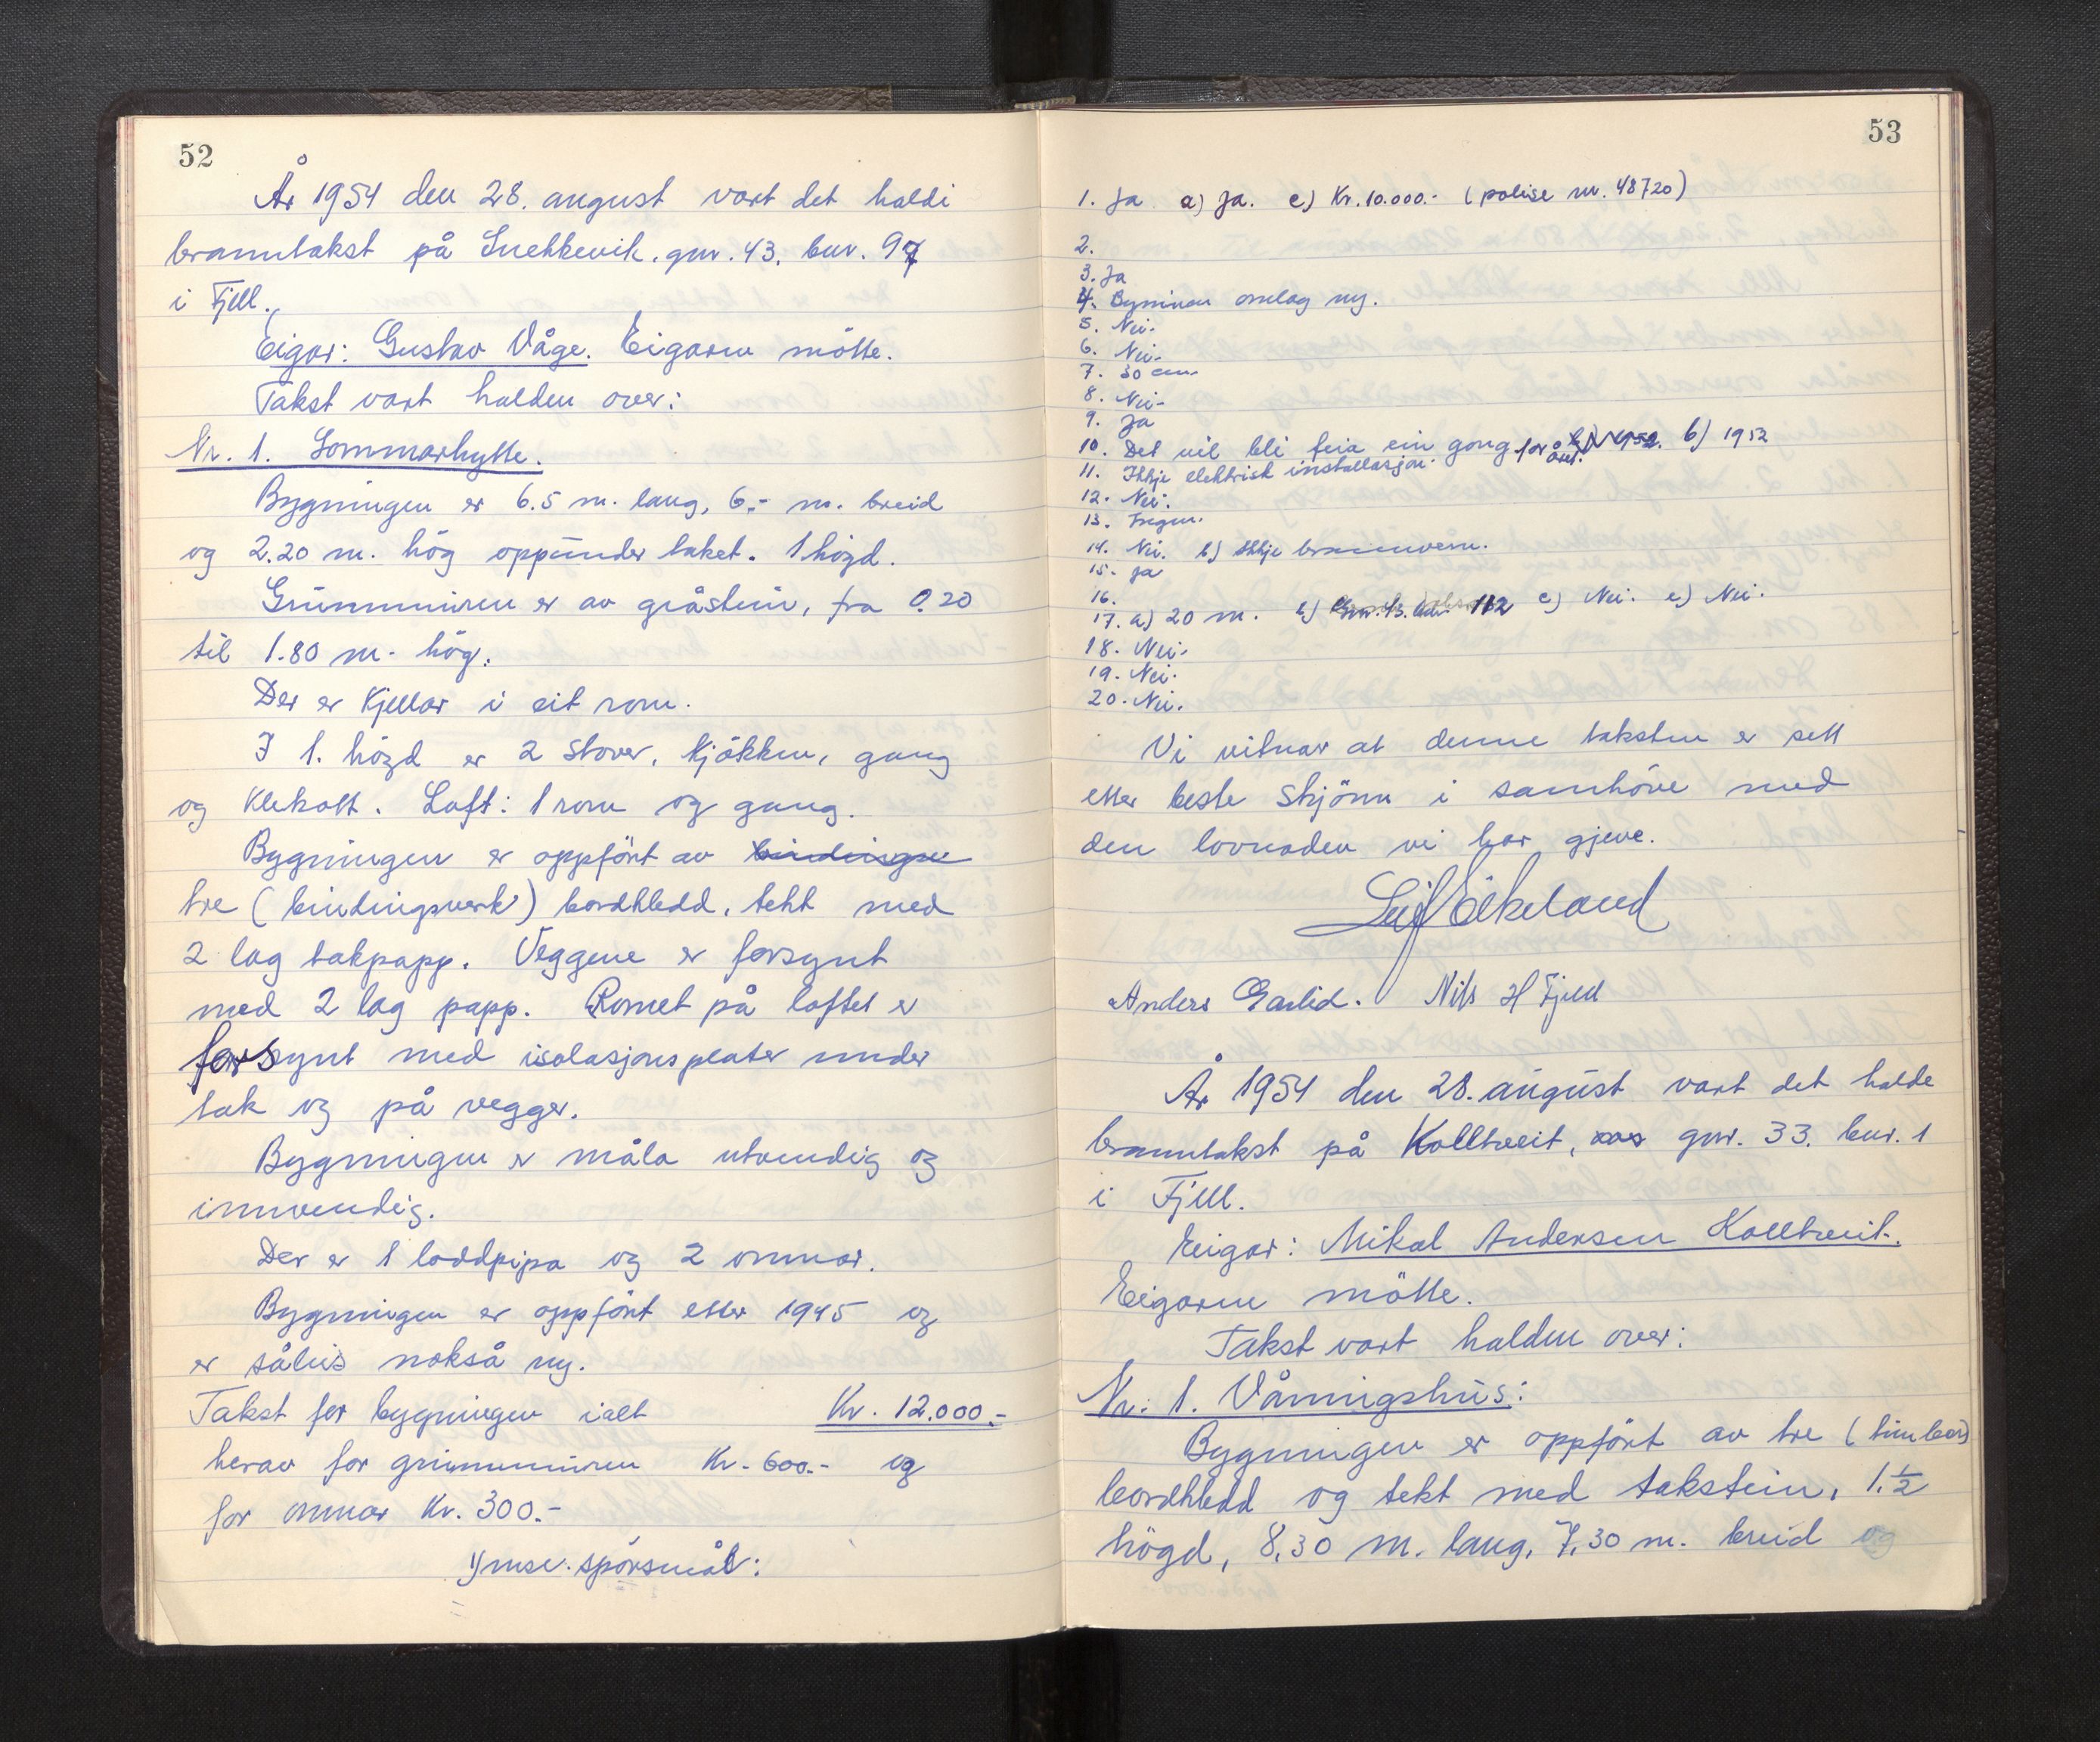 52
År 1954 den 28. august vart det haldi
branntakst på Snekkevik, gnr. 43, bnr. 97
i Fjell.
Eigar: Gustav Våge. Eigaren mötte.
Takst vart halden over:
Nr. 1. Sommarhytte.
Bygningen er 6.5 m. lang, 6.- m. breid
og 2.20 m. hög oppunder taket. 1 högd.
Grunnmuren er av gråstein, fra 0.20
til 1.80 m. hög.
Der er Kjellar i eit rom.
I 1. högd er 2 stover, kjökken, gang
og klekott. Loft: 1 rom og gang.
Bygningen er oppfört av
tre (bindingsverk) bordkledd, tekt med
2 lag takpapp. Veggene er forsynt
med 2 lag papp. Romet på loftet er
forsynt med isolasjonsplater under
tak og på vegger.
Bygningen er måla utvendig og
innvendig.
Der er 1 loddpipa og 2 omnar.
Bygningen er oppfört etter 1945 og
er såleis nokså ny.
Takst for bygningen ialt Kr. 12.000.-
herav for grunnmuren Kr. 600.- og
for omnar Kr. 300.-
Ymse spörsmål:
53
1. Ja a) Ja. c) Kr. 10.000.- (polise nr. 48720)
2.
3. Ja
4. Bygninen omlag ny.
5. Nei.
6. Nei.
7. 30 cm.
8. Nei.
9. Ja
10. Det vil bli feia ein gong for året. b) 1952
11. Ikkje elektrisk installasjon.
12. Nei.
13. Ingen.
14. Nei. b) Ikkje brannvern.
15. Ja
16.
17. a) 20 m. b) Gnr. 43. bnr. 112 c) Nei. e) Nei.
18. Nei.
19. Nei.
20. Nei.
Vi vitnar at denne taksten er sett
etter beste Skjönn i samhöve med
den lovnaden vi har gjeve.
Leif Eikeland
Anders Garlid. Nils H Fjell
År 1954 den 28. august vart det halde
branntakst på Kolltveit, gnr. 33. bnr. 1
i Fjell.
Eigar: Mikal Andersen Kolltveit.
Eigaren mötte.
Takst vart halden over:
Nr. 1. Våningshus:
Bygningen er oppfört av tre (timber)
bordkledd og tekt med takstein, 1.½
högd, 8,30 m. lang, 7,30 m. breid og